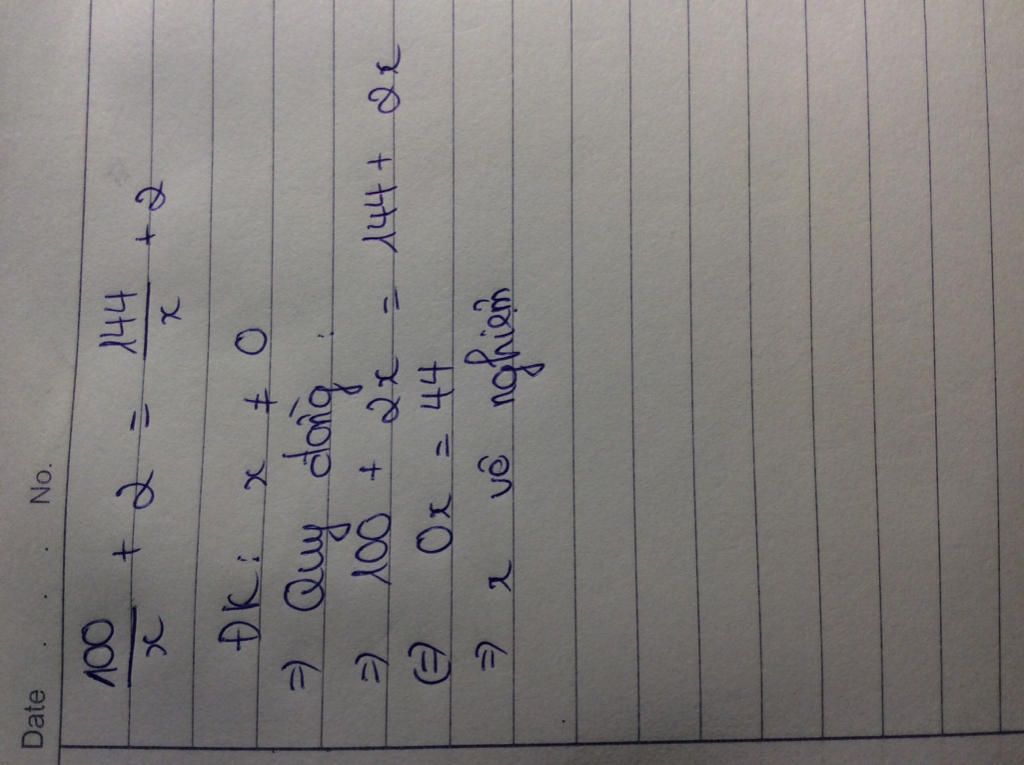 Date . . . No.
100/x + 2 = 144/x + 2
ĐK: x ≠ 0
=) Quy đồng :
=) 100 + 2x = 144 + 2x
(=) 0x = 44
=) x vô nghiệm